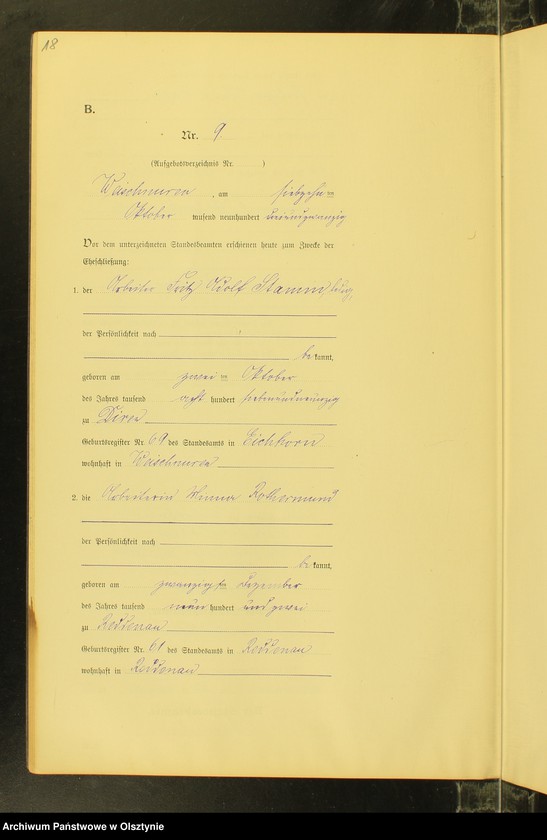 18
B.
Nr. 9.
(Aufgebotsverzeichnis Nr. )
Waschnurea, am siebzehnten
Oktober tausend neunhundert dreiundzwanzig
Vor dem unterzeichneten Standesbeamten erschienen heute zum Zwecke der
Eheschließung:
1. der Arbeiter Fritz Adolf Stamm
der Persönlichkeit nach
bekannt,
geboren am zweiten Oktober
des Jahres tausend acht hundert siebenundneunzig
zu
Geburtsregister Nr. 69 des Standesamts in Eichhorn
wohnhaft in
2. die Arbeiterin Minna Rothermund
der Persönlichkeit nach
bekannt,
geboren am zwanzigsten Dezember
des Jahres tausend neun hundert und zwei
zu Reddenau
Geburtsregister Nr. 61 des Standesamts in Reddenau
wohnhaft in Reddenau
Archiwum Państwowe w Olsztynie